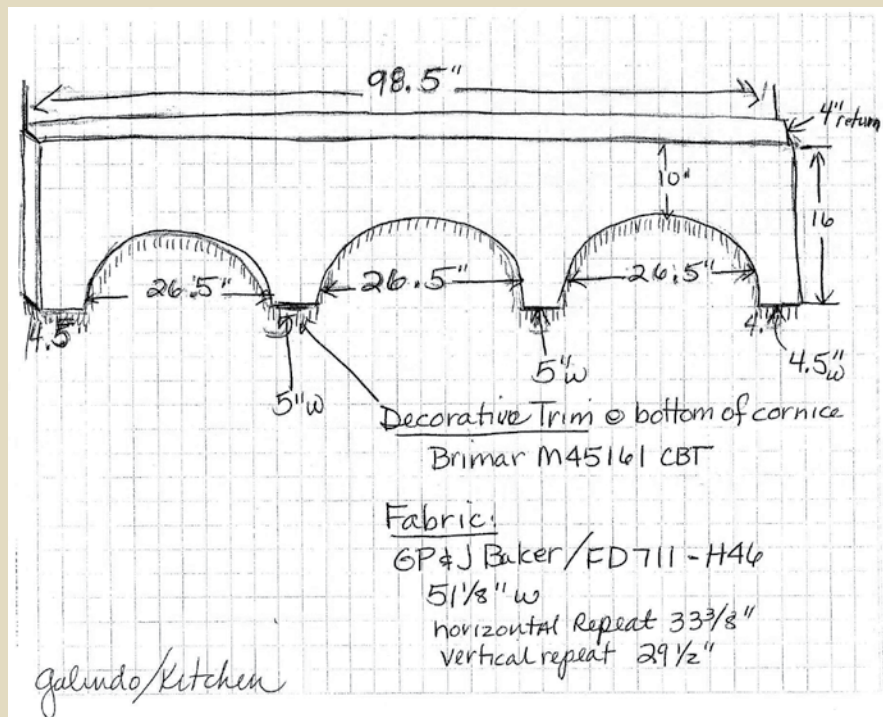 98.5"
4" return
10"
16
26.5"
26.5"
26.5"
4.5
5"
4.
5"w
5"w
4.5"w
Decorative Trim @ bottom of cornice
Brimar M45161 CBT
Fabric:
GP & J Baker/FD711-H46
51 1/8" w
horizontal Repeat 33 3/8"
vertical repeat 29 1/2"
Galindo/Kitchen